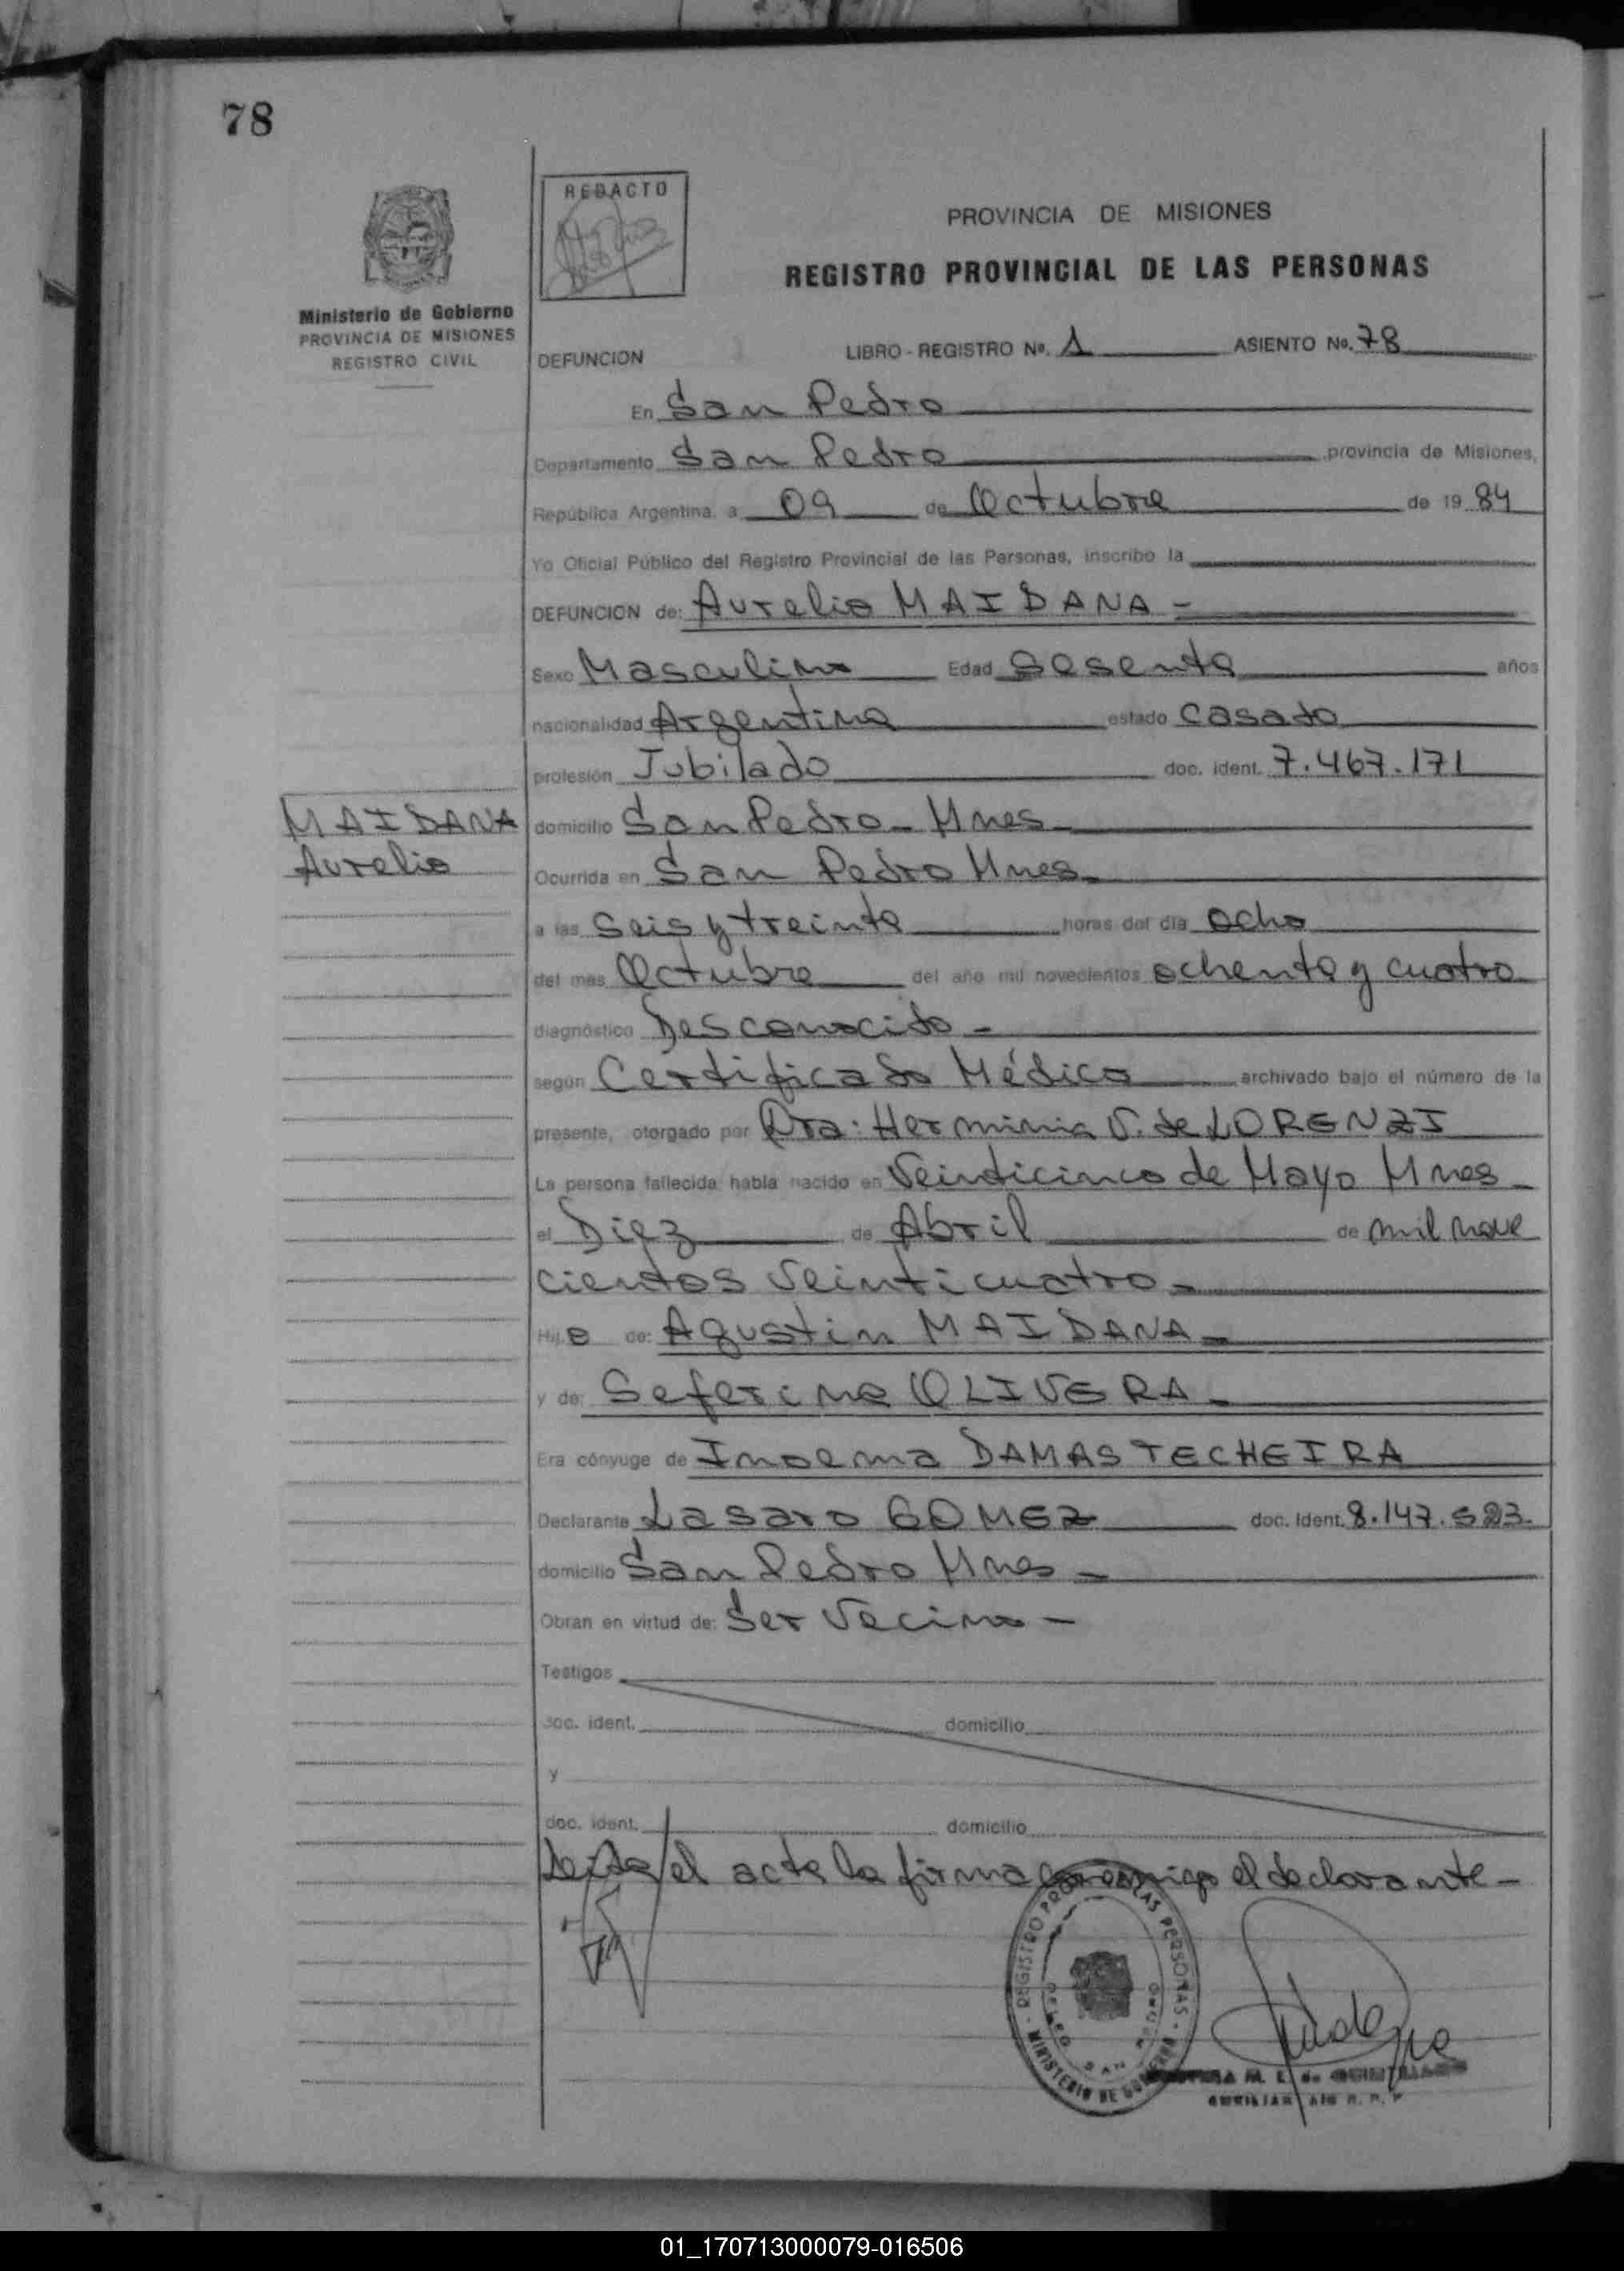 78
REDACTO
PROVINCIA DE MISIONES
REGISTRO PROVINCIAL DE LAS PERSONAS
Ministerio de Gobierno
PROVINCIA DE MISIONES
REGISTRO CIVIL
DEFUNCION LIBRO - REGISTRO Nº. 1 ASIENTO Nº. 78
En San Pedro
Departamento San Pedro provincia de Misiones,
República Argentina, a 09 de Octubre de 19 84
Yo Oficial Público del Registro Provincial de las Personas, inscribo la
DEFUNCION de: Aurelio MAIDANA -
Sexo Masculino Edad Sesenta años
nacionalidad Argentina estado Casado
profesión Jubilado doc. ident. 7.467.171
MAIDANA
Aurelio
domicilio San Pedro - Mnes -
Ocurrida en San Pedro Mnes -
a las Seis y treinta horas del día Ocho
del mes Octubre del año mil novecientos ochenta y cuatro
diagnóstico Desconocido -
según Certificado Médico archivado bajo el número de la
presente, otorgado por Dra: Herminia V. de LORENZI
La persona fallecida había nacido en Veinticinco de Mayo Mnes -
el Diez de Abril de mil nove
cientos Veinticuatro -
Hijo de: Agustin MAIDANA -
y de: Seferina OLIVERA -
Era cónyuge de DAMASTECHEIRA
Declarante Lasaro GOMEZ doc. ident. 8.147.
domicilio San Pedro Mnes -
Obran en virtud de: Ser Vecino -
Testigos
doc. ident. domicilio
y
doc. ident. domicilio
Leida el acta la firma conmigo el declarante -
REGISTRO PROV. DE LAS PERSONAS - MINISTERIO DE GOBIERNO
SAN PEDRO
M. E. de
AUXILIAR
01_170713000079-016506